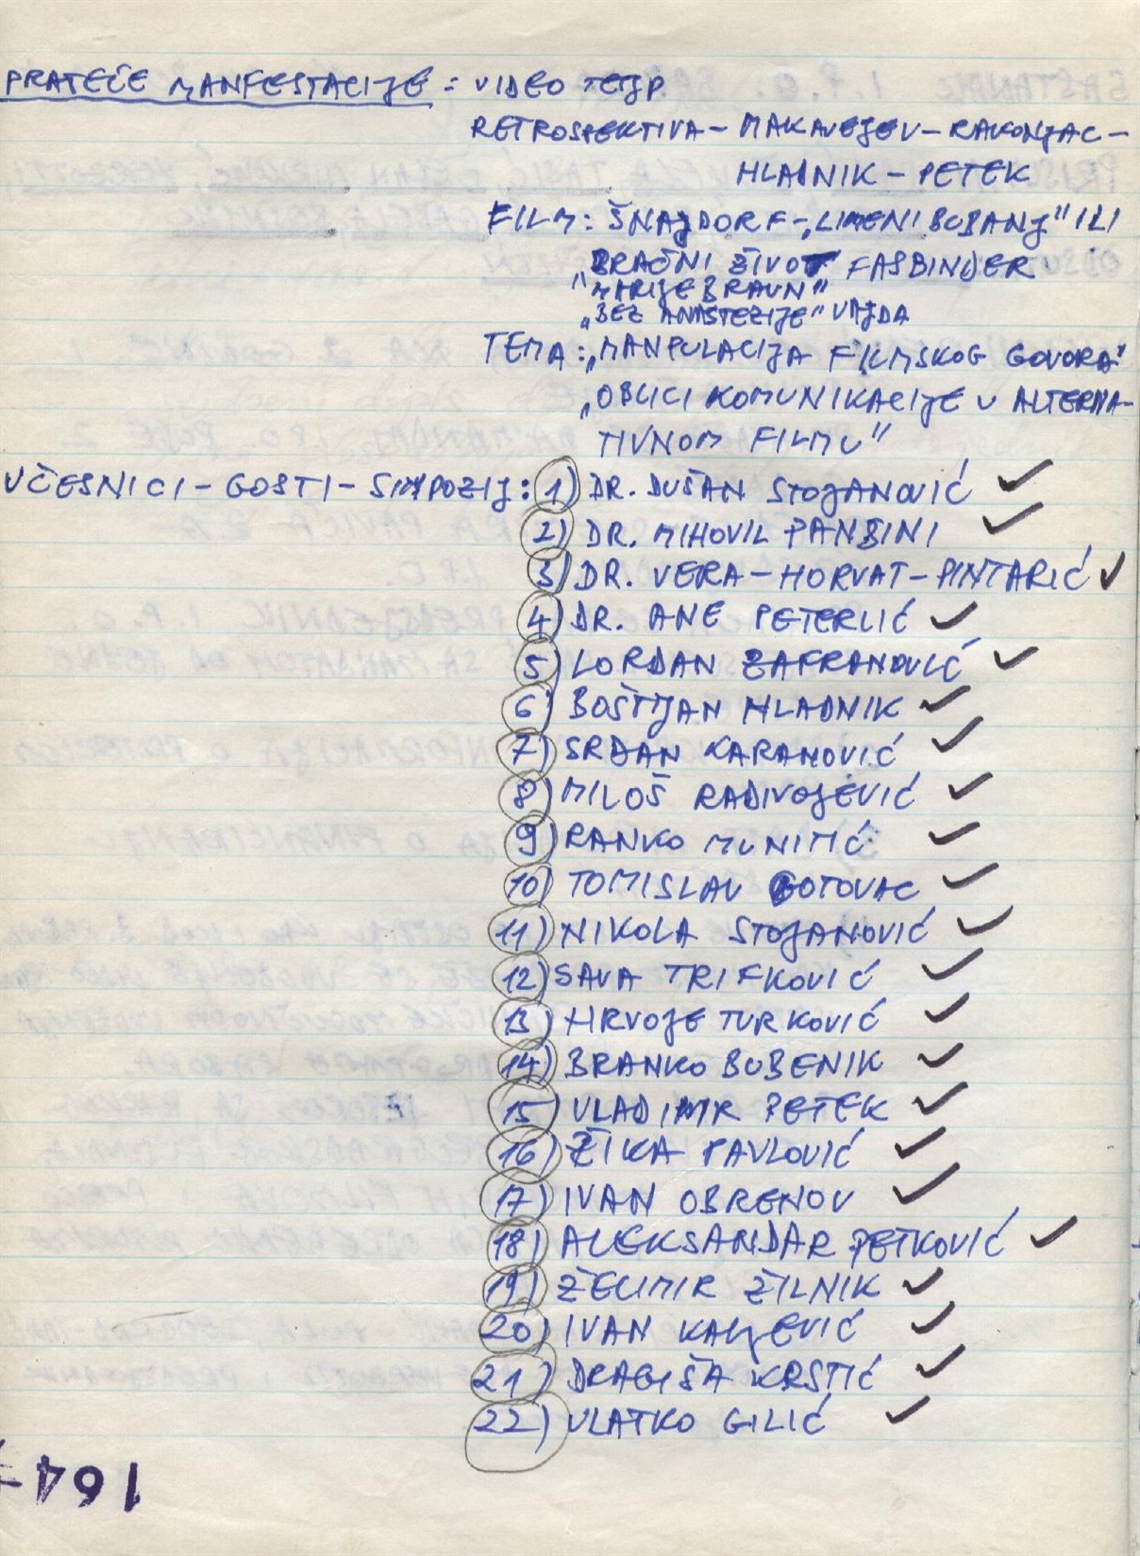 PRATEĆE MANFESTACIJE: VIDEO TEJP
RETROSPEKTIVA - MAKAVEJEV - RAKONJAC -
HLADNIK - PETEK
FILM: ŠNAJDORF - „LIMENI BUBANJ" ILI
„BRAČNI ŽIVOT FASBINDER
MARIJE BRAUN"
„BEZ ANASTEZIJE" VAJDA
TEMA: „MANPULACIJA FILMSKOG GOVORA"
„OBLICI KOMUNIKACIJE U ALTERNA-
TIVNOM FILMU"
UČESNICI - GOSTI - SIMPOZIJ: 1) DR. DUŠAN STOJANOVIĆ ✓
2) DR. MIHOVIL PANSINI ✓
3) DR. VERA - HORVAT - PINTARIĆ ✓
4) DR. ANE PETERLIĆ ✓
5) LORDAN ZAFRANOVIĆ ✓
6) BOŠTJAN HLADNIK ✓
7) SRĐAN KARANOVIĆ ✓
8) MILOŠ RADIVOJEVIĆ ✓
9) RANKO MUNITIĆ ✓
10) TOMISLAV GOTOVAC ✓
11) NIKOLA STOJANOVIĆ ✓
12) SAVA TRIFKOVIĆ ✓
13) HRVOJE TURKOVIĆ ✓
14) BRANKO BUBENIK ✓
15) VLADIMIR PETEK ✓
16) ŽIKA PAVLOVIĆ ✓
17) IVAN OBRENOV ✓
18) ALEKSANDAR PETKOVIĆ ✓
19) ŽELIMIR ŽILNIK ✓
20) IVAN KALJEVIĆ ✓
21) DRAGIŠA KRSTIĆ ✓
22) VLATKO GILIĆ ✓
164